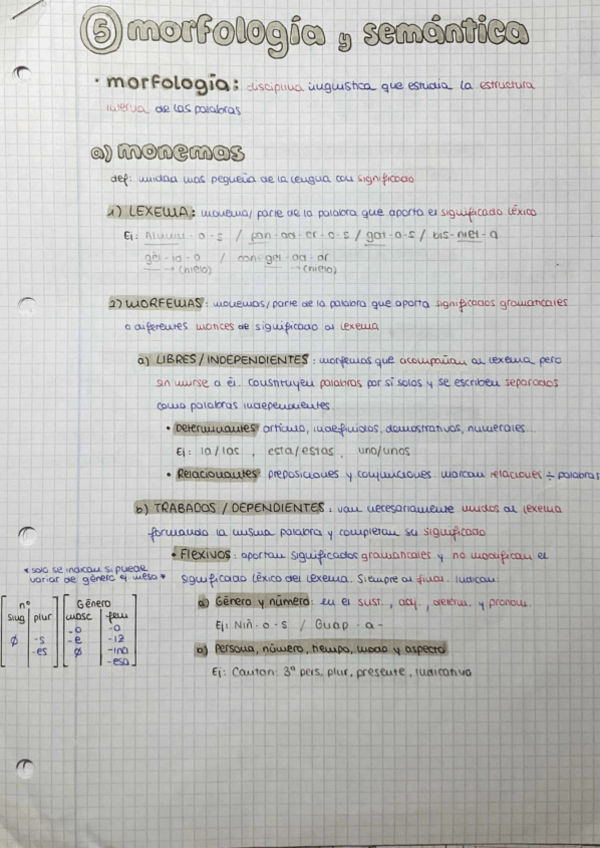 ⑤ morfología y semántica
· morfología: disciplina lingüística que estudia la estructura
interna de las palabras
a) monemas
def: unidad mas pequeña de la lengua con significado
1) LEXEMA: monema/parte de la palabra que aporta el significado léxico
Ej: Alumn-o-s / pan-ad-er-o-s / gat-o-s / bis-niet-a
gel-ad-o / con-gel-ad-or
→ (hielo) → (hielo)
2) MORFEMAS: monemas/parte de la palabra que aporta significados gramaticales
o diferentes matices de significado al lexema
a) LIBRES / INDEPENDIENTES: morfemas que acompañan al lexema pero
sin unirse a él. Constituyen palabras por si solos y se escriben separados
como palabras independientes
• Determinantes: artículo, indefinidos, demostrativos, numerales...
Ej: la/las, esta/estas, uno/unos
• Relacionantes: preposiciones y conjunciones. marcan relaciones ÷ palabras
b) TRABADOS / DEPENDIENTES: van necesariamente unidos al lexema
formando la misma palabra y completan su significado
• FLEXIVOS: aportan significados gramaticales y no modifican el
significado léxico del lexema. Siempre al final. Indican:
* solo se indican si puede
variar de género y
a) Género y número: en el sust., adj., determ. y pronom.
Ej: Niñ-o-s / Guap-a-
b) Persona, número, tiempo, modo y aspecto
Ej: Cantan: 3ª pers, plur, presente, indicativo
nº Género
sing plur masc fem
Ø -s -o -a
-es -e -iz
Ø -ina
-esa